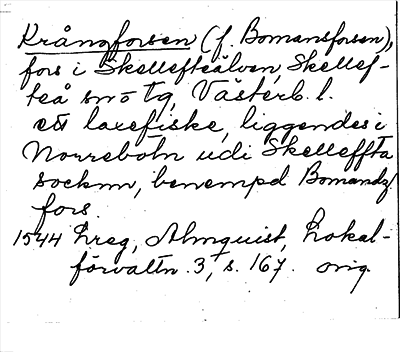 Krångforsen (f. Bomansforsen),
fors i Skellefteälven, Skellef-
teå sn o tg, Västerb. l.
ett laxefiske, liggendes i
Norrebotn udi Skelleffta
socknn, benempd Bomandz/
fors.
1544 hreg, Almquist, Lokal-
förvaltn. 3, s. 167. orig.